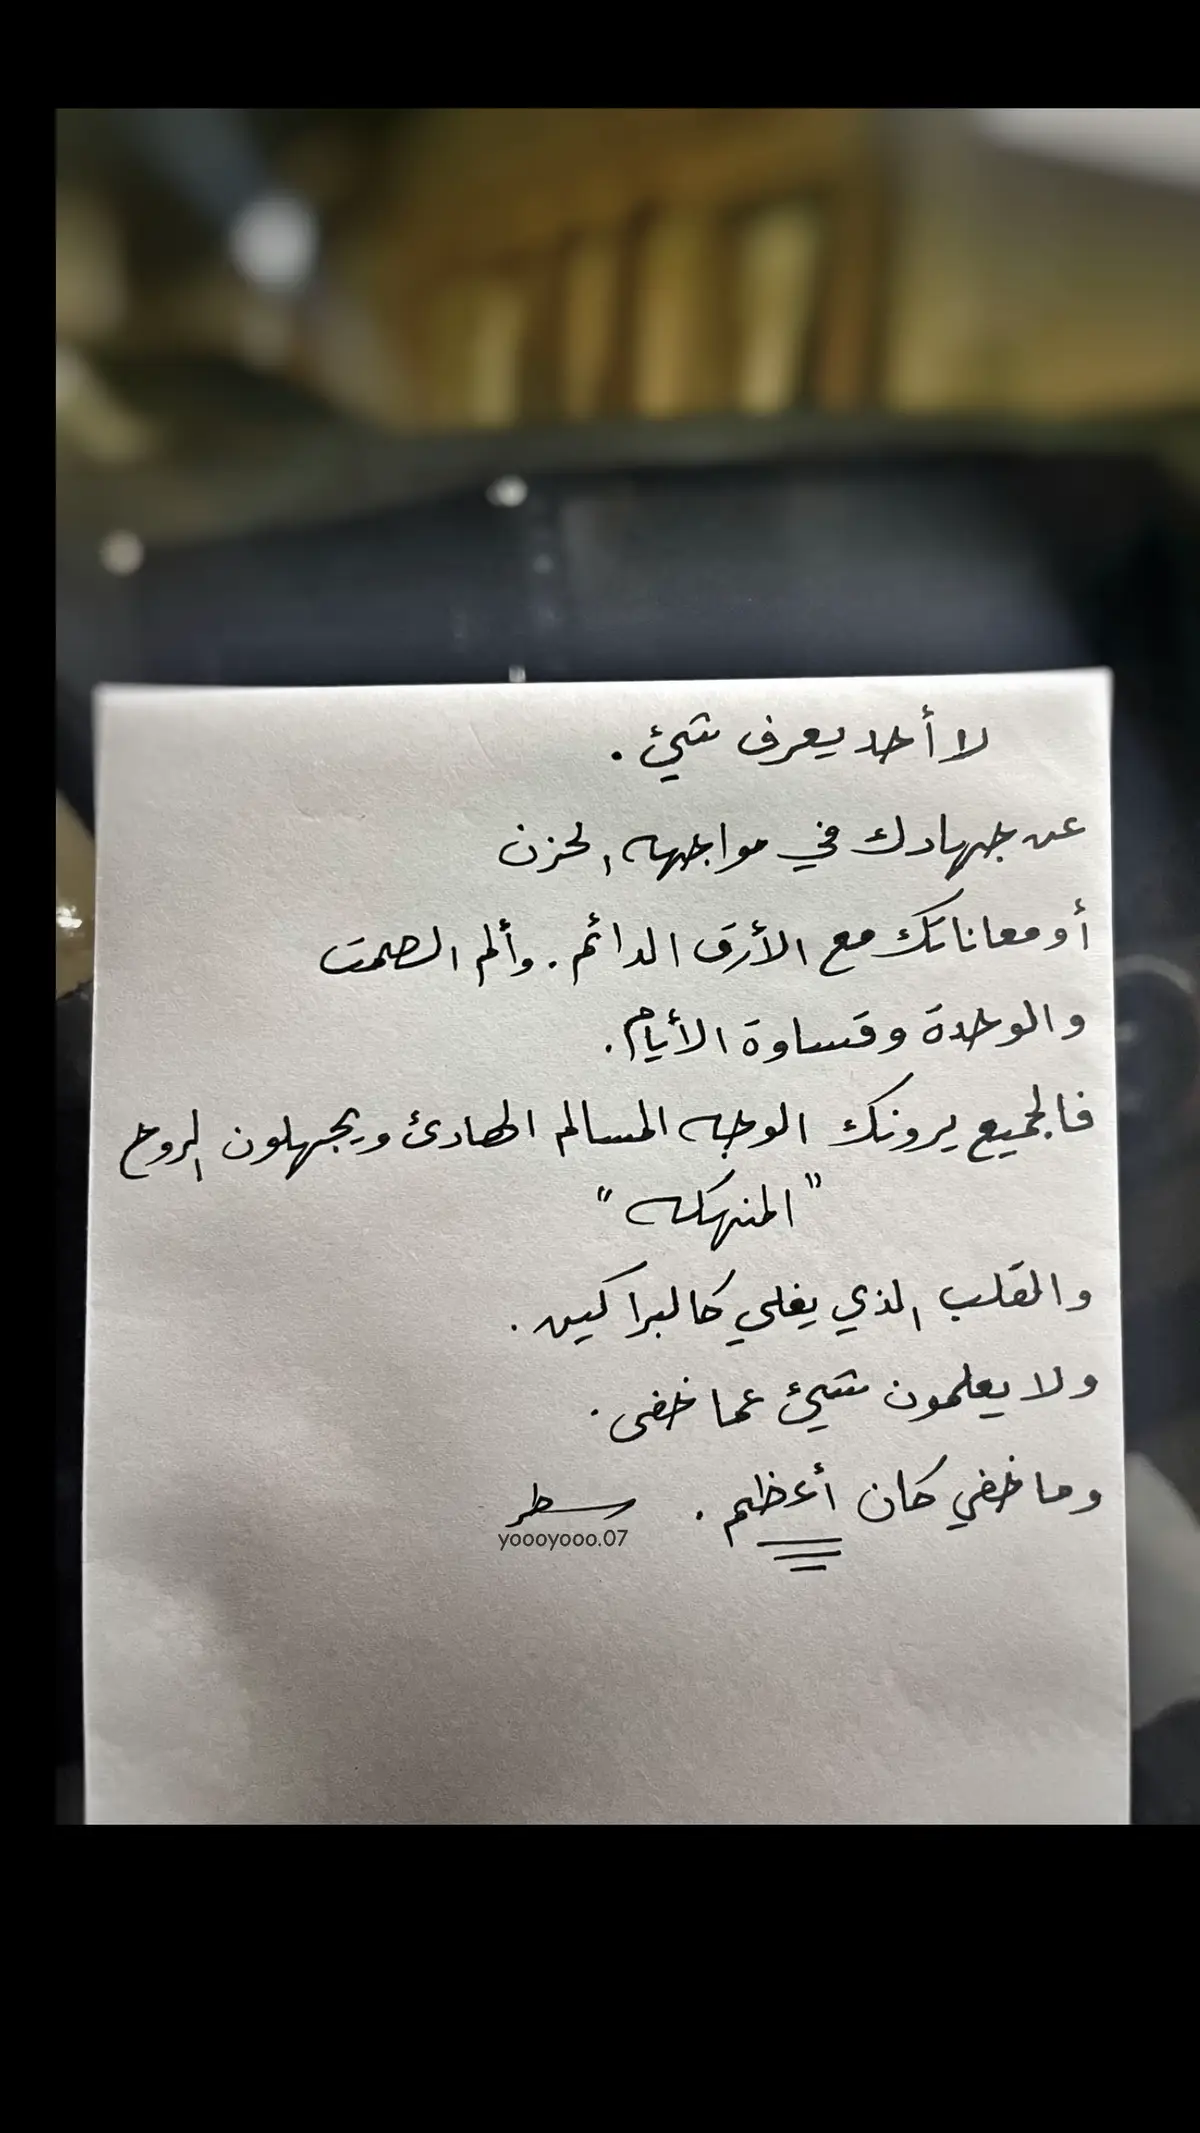 لا أحد يعرف شيئ .
عن جهادك في مواجهه الحزن
أو معاناتك مع الأرق الدائم . وألم الصمت
والوحدة وقساوة الأيام .
فالجميع يرونك الوجه المسالم الهادئ ويجهلون الروح
"المنهكه"
والقلب الذي يغلي كالبراكين .
ولا يعلمون شيئ عما خفى .
وما خفي كان أعظم . سطر
yoooyooo.07